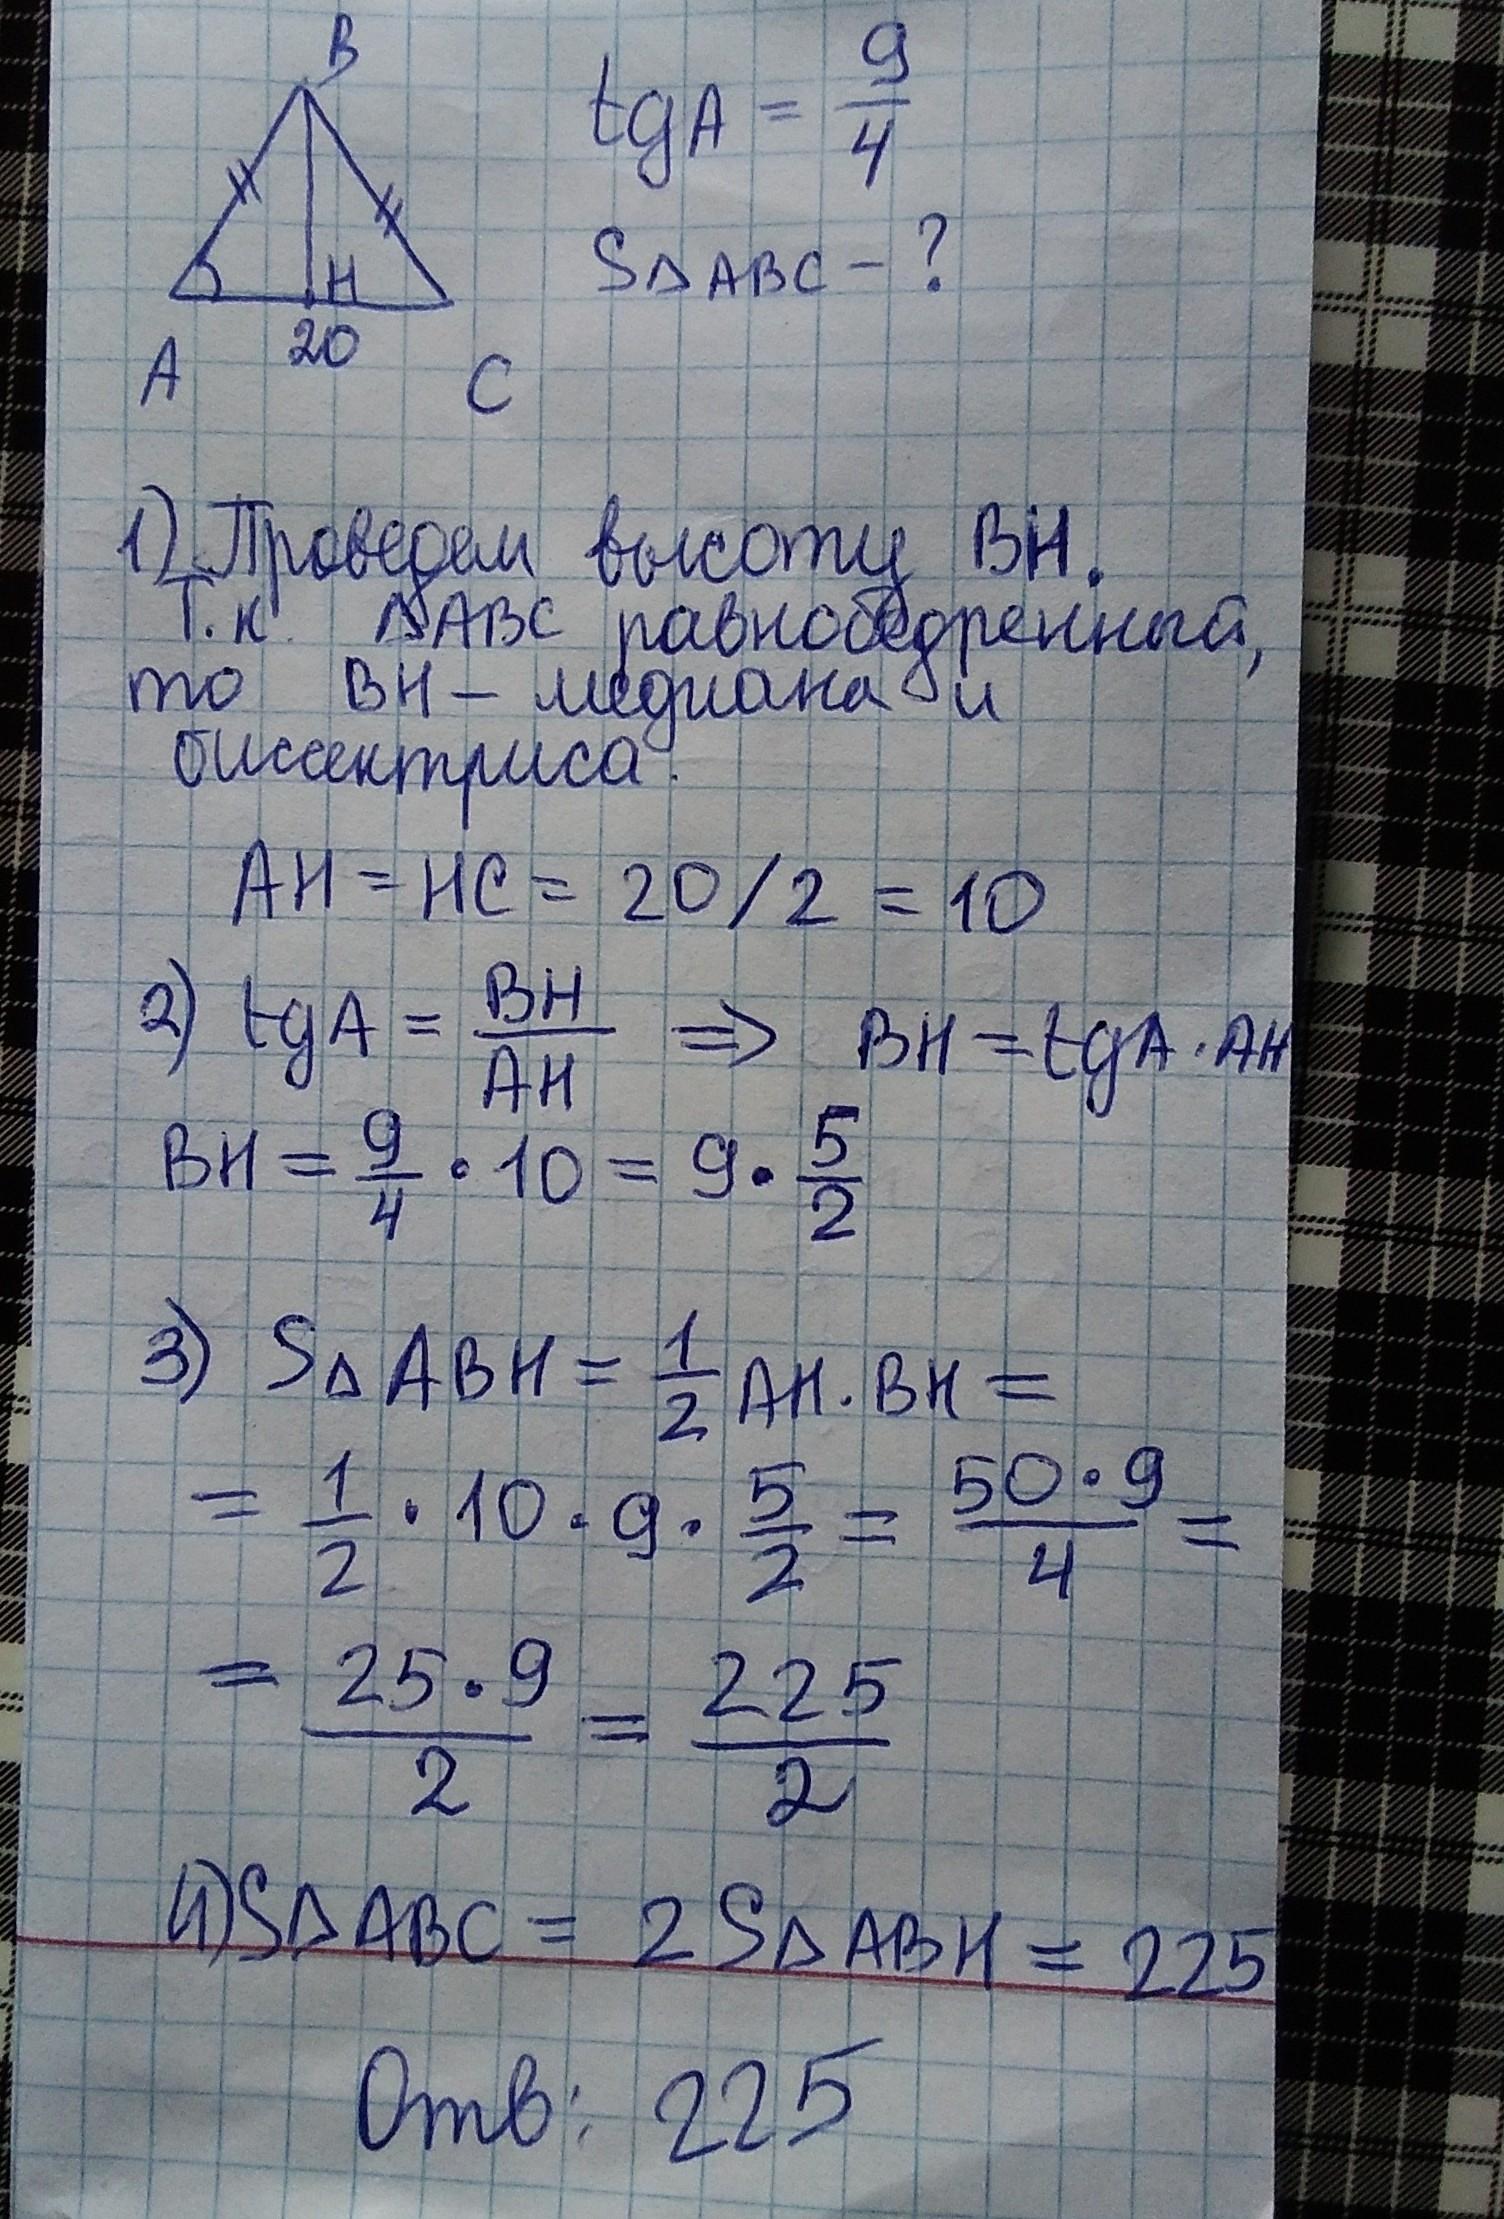 B
tgA = 9/4
S△ABC - ?
H
20
A
C
1) Проведем высоту BH.
Т.к. △ABC равнобедренный,
то BH - медиана и
биссектриса.
AH = HC = 20/2 = 10
2) tgA = BH/AH => BH = tgA · AH
BH = 9/4 · 10 = 9 · 5/2
3) S△ABH = 1/2 AH · BH =
= 1/2 · 10 · 9 · 5/2 = 50 · 9/4 =
= 25 · 9/2 = 225/2
4) S△ABC = 2 S△ABH = 225
Отв: 225